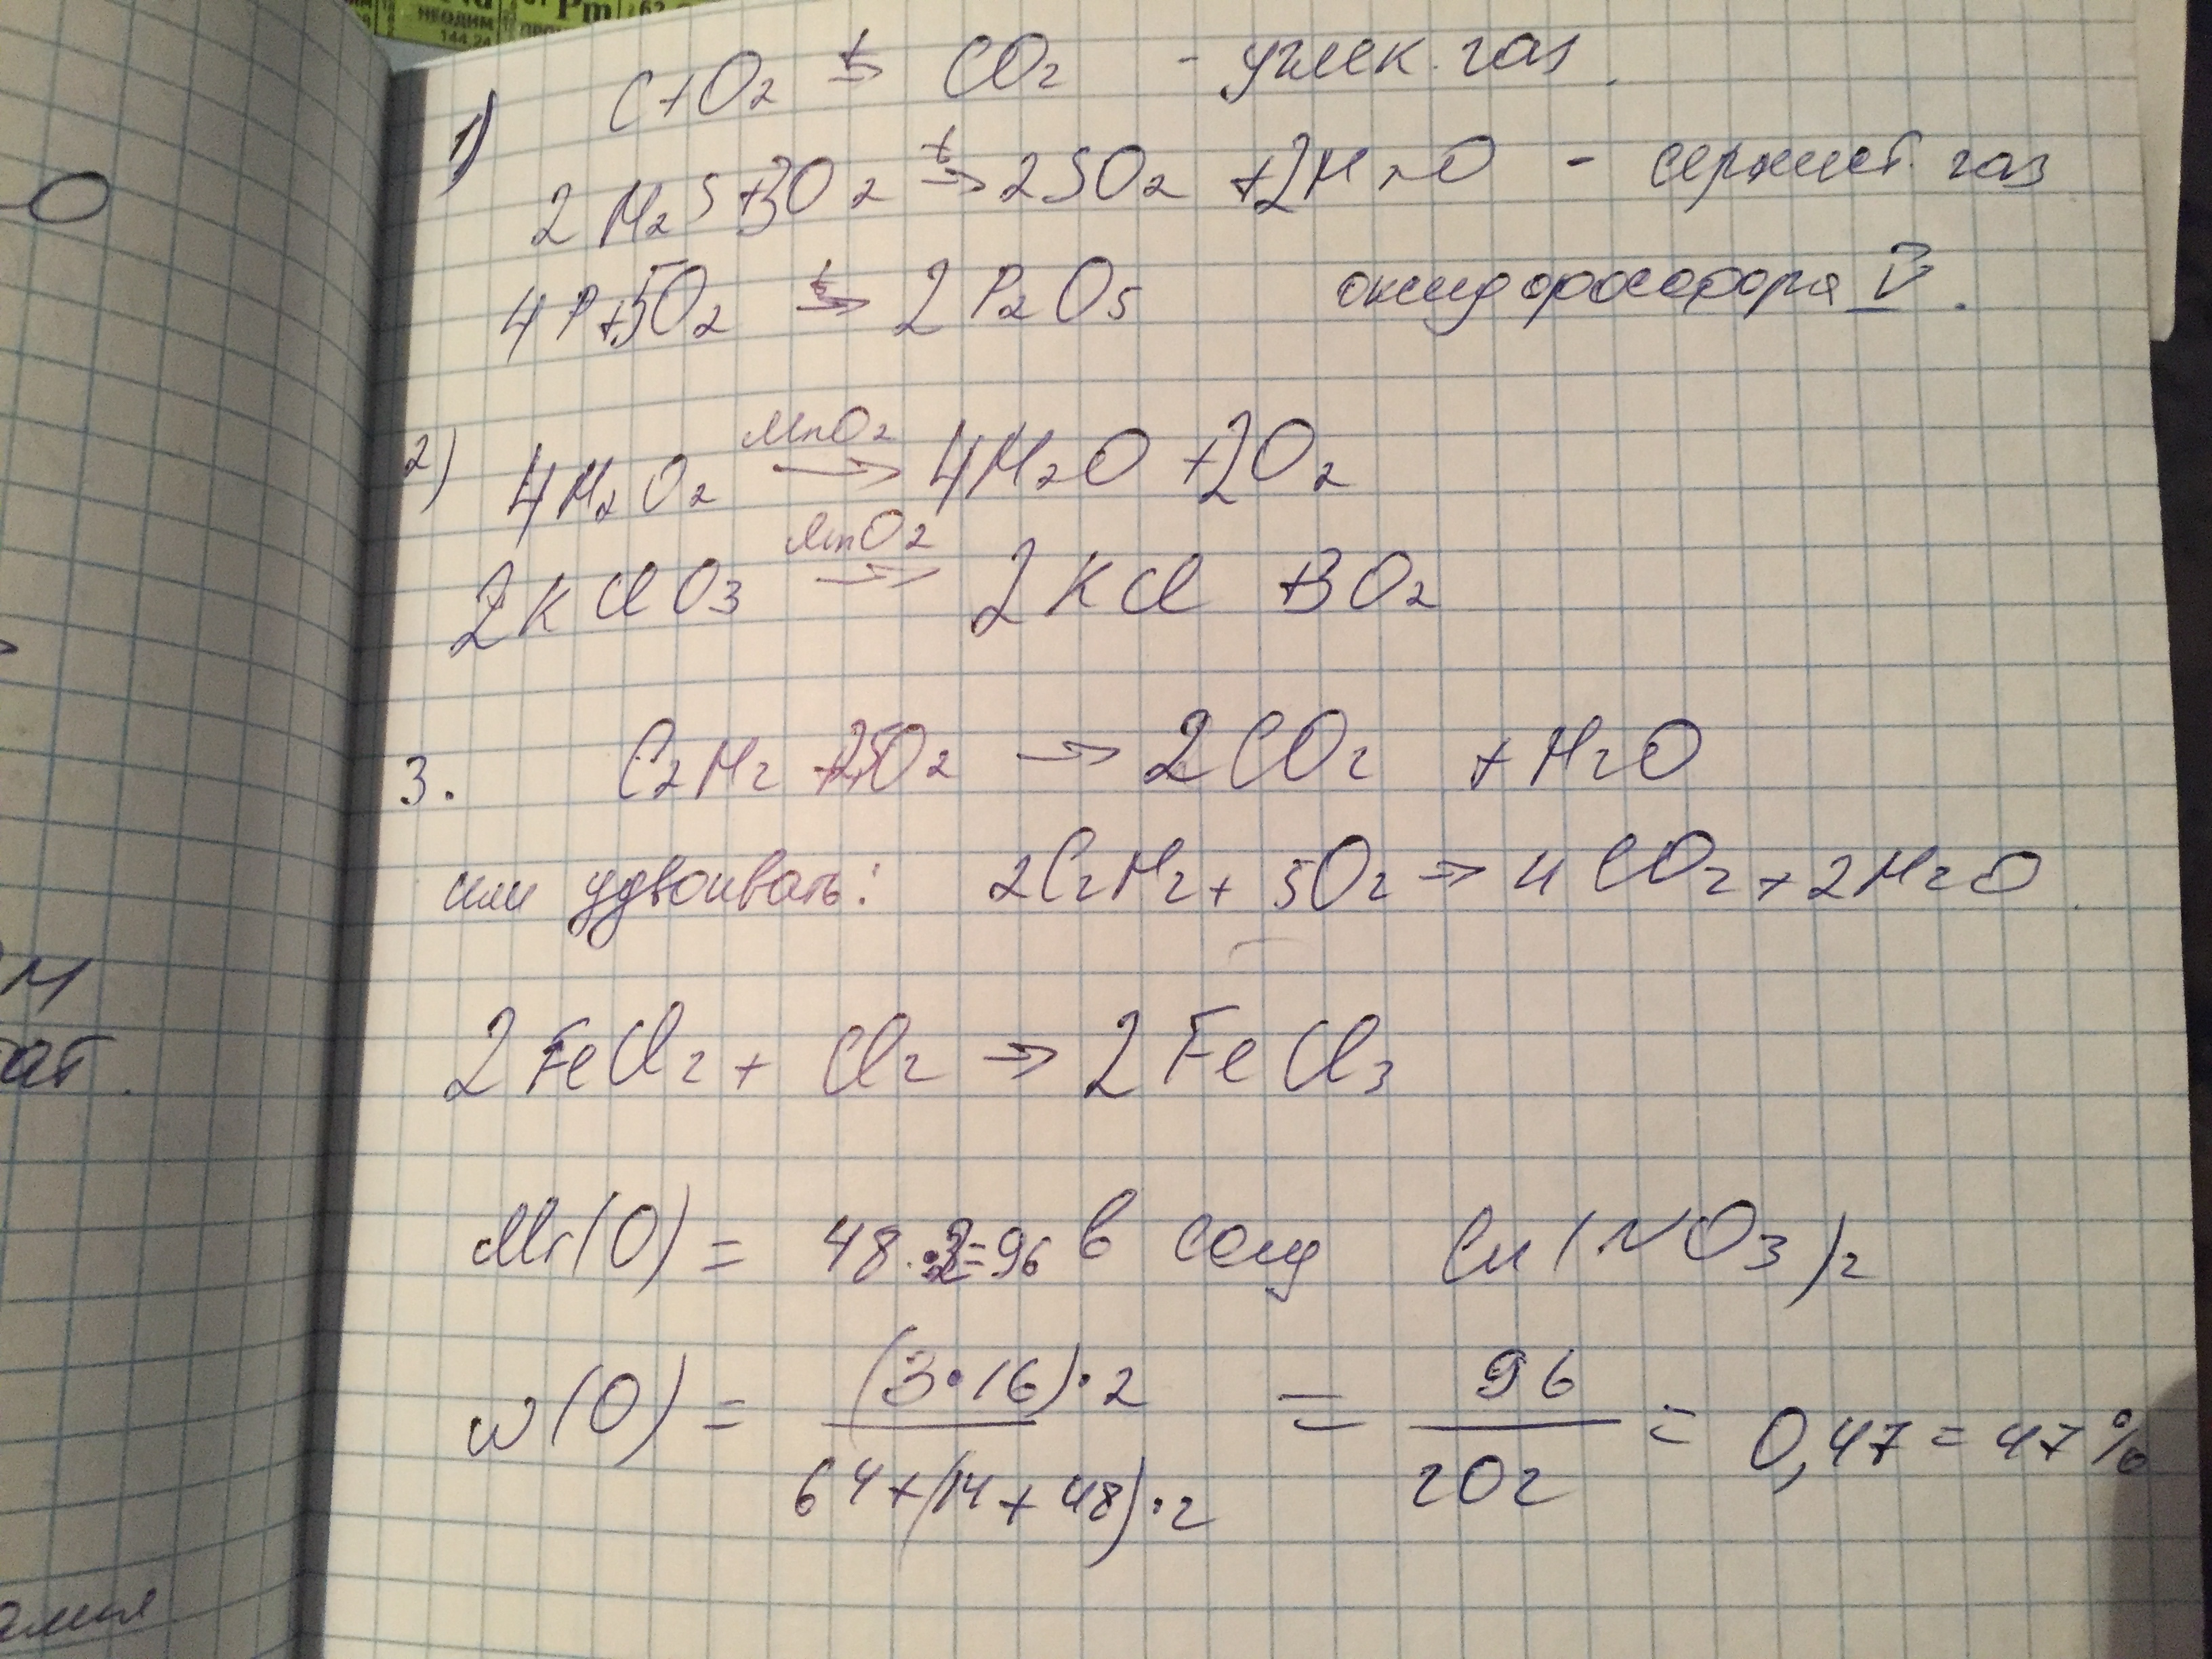 Pm 62
НЕОДИМ
144,24
1) C+O₂ t→ CO₂ - углек. газ.
2H₂S+3O₂ t→ 2SO₂ +2H₂O - сернист. газ
4P+5O₂ t→ 2P₂O₅ оксид фосфора V.
2) 4H₂O₂ MnO₂→ 4H₂O +2O₂
2KClO₃ MnO₂→ 2KCl +3O₂
3. C₂H₂ +2,5O₂ → 2CO₂ +H₂O
или удвоивать: 2C₂H₂+ 5O₂ → 4CO₂+2H₂O.
2FeCl₂+ Cl₂ → 2FeCl₃
Mr(O) = 48·2=96 в соед Cu(NO₃)₂
w(O) = (3·16)·2 / 64+(14+48)·2 = 96 / 202 = 0,47 = 47%
О
ом
тат.